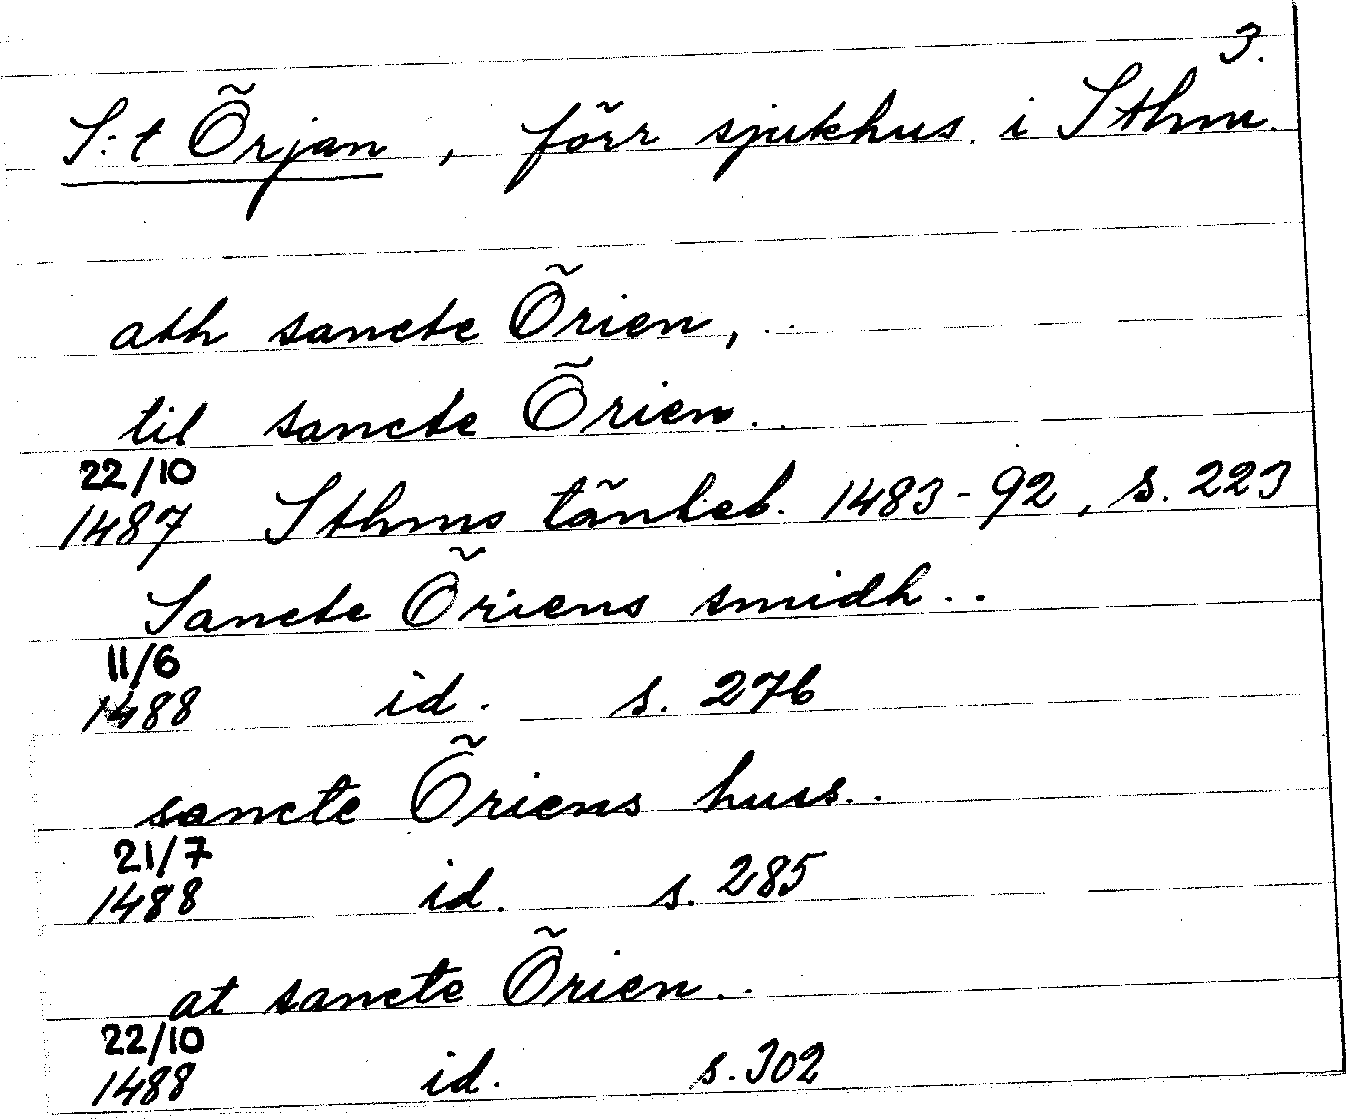 3.
S:t Õrjan, fõrr sjukhus i Sthm.
ath sancte Õrien,
til sancte Õrien..
22/10
1487 Sthms tãnkeb. 1483-92, s. 223
Sancte Õriens smidh..
11/6
1488 id. s. 276
sancte Õriens huus..
21/7
1488 id. s. 285
at sancte Õrien..
22/10
1488 id. s. 302